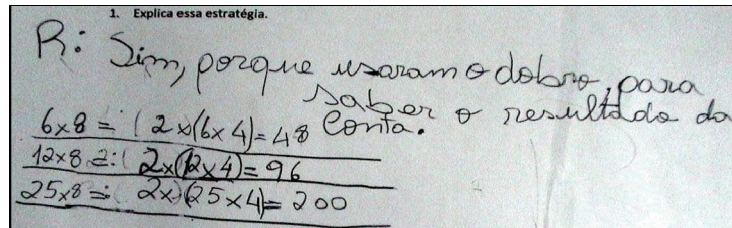 1. Explica essa estratégia.
R: Sim, porque usaram o dobro, para
saber o resultado da
conta.
6x8 = (2x(6x4)=48
12x8 = (2x(12x4)=96
25x8 = 2x(25x4)=200